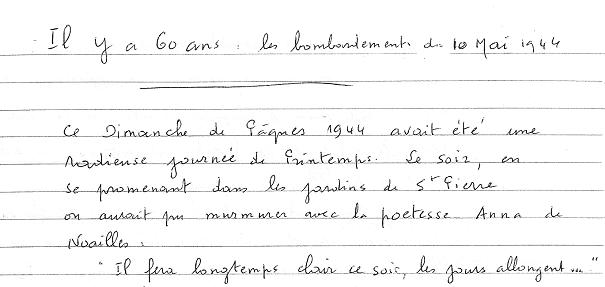 Il y a 60 ans : les bombardements du 10 Mai 1944
Ce Dimanche de Pâques 1944 avait été une
radieuse journée de Printemps. Le soir, en
se promenant dans les jardins de St Pierre
on aurait pu murmurer avec la poétesse Anna de
Noailles :
" Il fera longtemps clair ce soir, les jours allongent... "